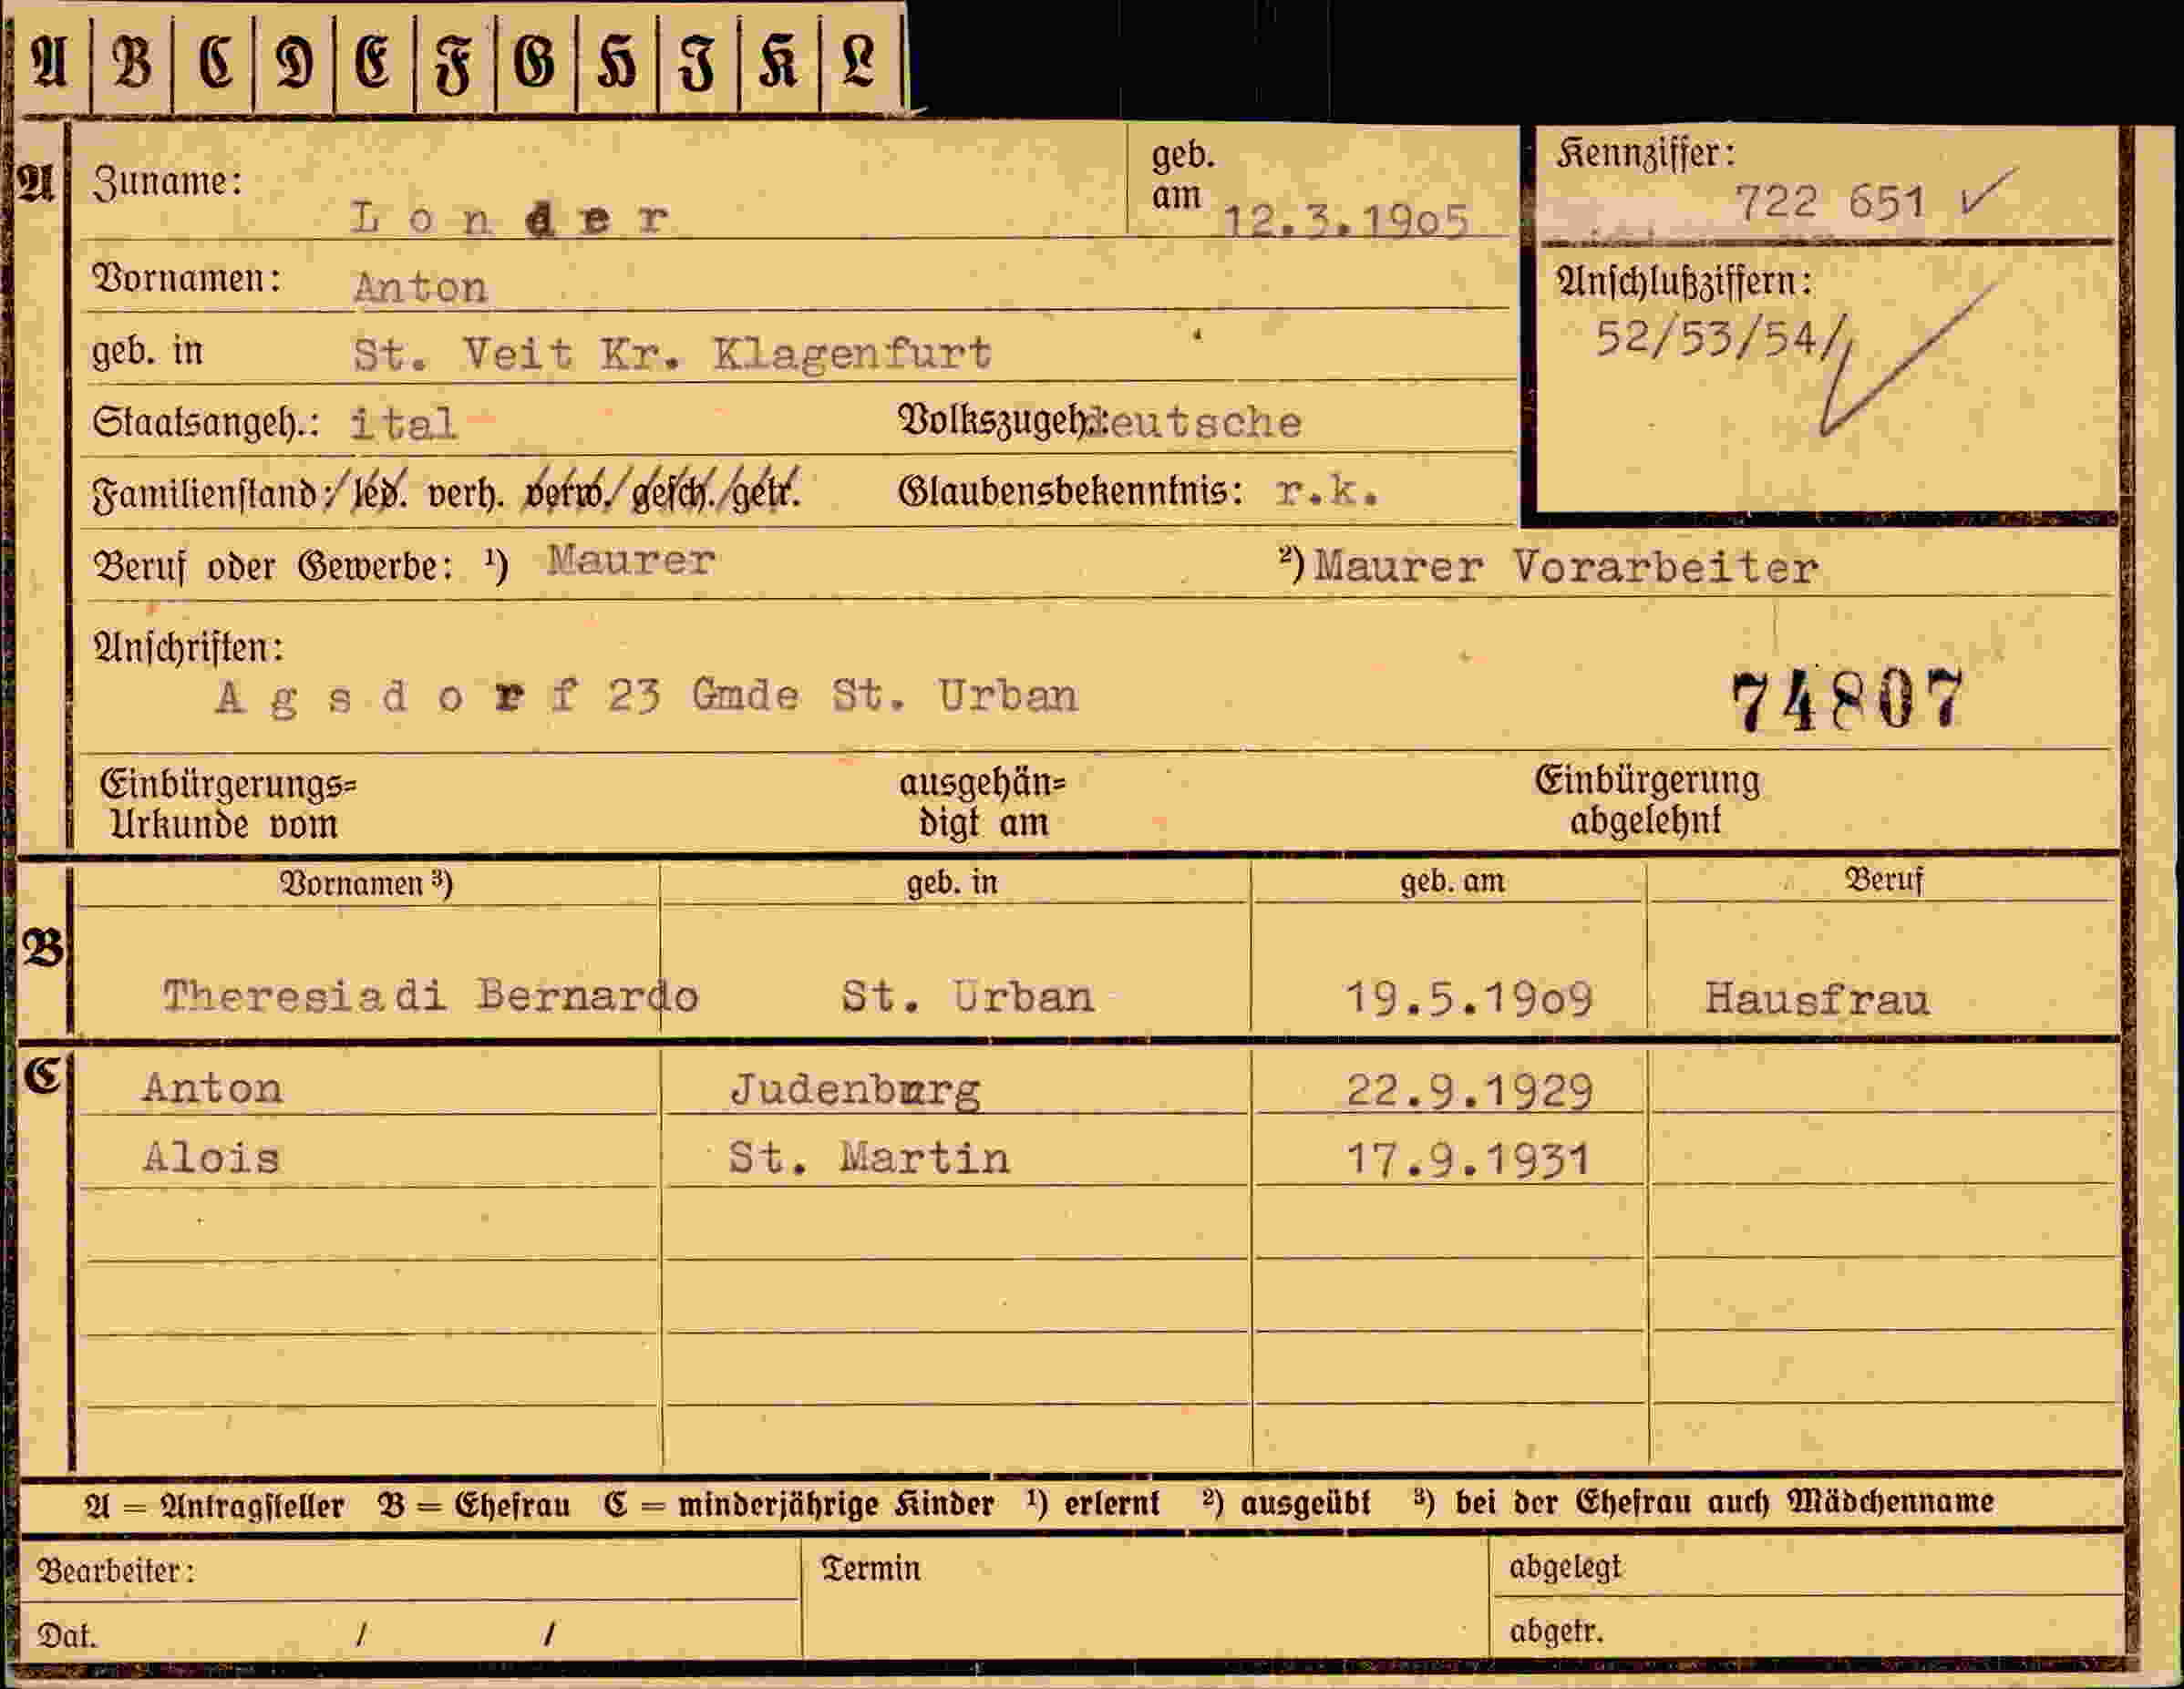 A B C D E F G H I K L
A Zuname: Londer geb. am 12.3.1905
Kennziffer: 722 651
Vornamen: Anton
Anschlußziffern: 52/53/54/
geb. in St. Veit Kr. Klagenfurt
Staatsangeh.: ital Volkszugeh.: deutsche
Familienstand: led. verh. verw. gesch. getr. Glaubensbekenntnis: r.k.
Beruf oder Gewerbe: ¹) Maurer ²) Maurer Vorarbeiter
Anschriften:
Agsdorf 23 Gmde St. Urban 74807
Einbürgerungs= ausgehän= Einbürgerung
Urkunde vom digt am abgelehnt
Vornamen ³) geb. in geb. am Beruf
B Theresia di Bernardo St. Urban 19.5.1909 Hausfrau
C Anton Judenburg 22.9.1929
Alois St. Martin 17.9.1931
A = Antragsteller B = Ehefrau C = minderjährige Kinder ¹) erlernt ²) ausgeübt ³) bei der Ehefrau auch Mädchenname
Bearbeiter: Termin abgelegt
Dat. / / abgetr.